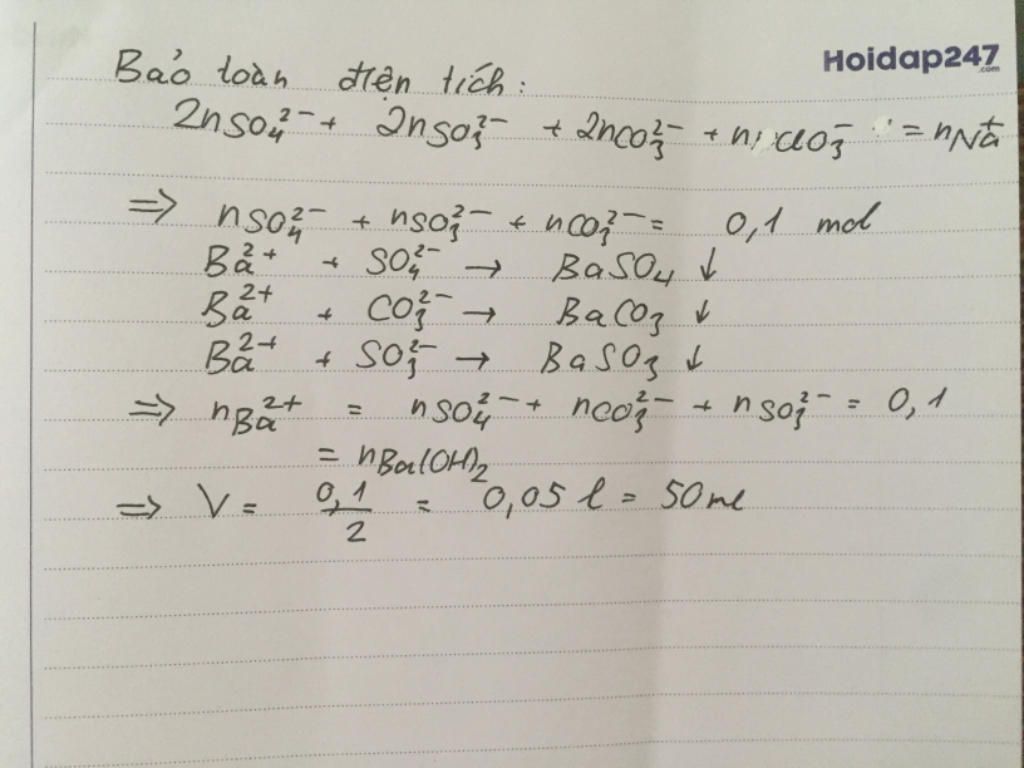 Hoidap247
.com
Bảo toàn điện tích:
2nSO₄²⁻ + 2nSO₃²⁻ + 2nCO₃²⁻ + nClO₃⁻ = nNa⁺
=> nSO₄²⁻ + nSO₃²⁻ + nCO₃²⁻ = 0,1 mol
Ba²⁺ + SO₄²⁻ → BaSO₄ ↓
Ba²⁺ + CO₃²⁻ → BaCO₃ ↓
Ba²⁺ + SO₃²⁻ → BaSO₃ ↓
=> nBa²⁺ = nSO₄²⁻ + nCO₃²⁻ + nSO₃²⁻ = 0,1
= nBa(OH)₂
=> V = 0,1/2 = 0,05 l = 50 ml